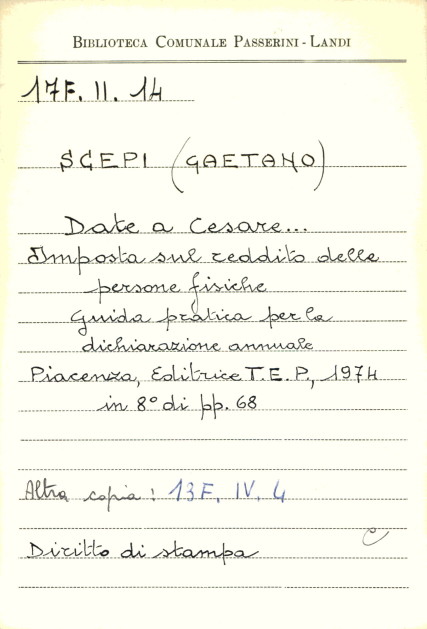 BIBLIOTECA COMUNALE PASSERINI - LANDI
17F. II. 14
SCEPI (GAETANO)
Date a Cesare...
Imposta sul reddito delle
persone fisiche
Guida pratica per la
dichiarazione annuale
Piacenza, Editrice T.E.P., 1974
in 8° di pp. 68
Altra copia: 13F. IV. 4
C
Diritto di stampa